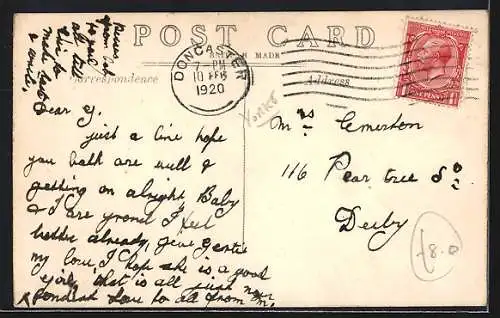 POST CARD
BRITISH MADE
Correspondence
Address
DONCASTER
7 - PM
10 FEB
1920
YORKS
Dear G.
just a line hope
you both are well &
getting on alright. Baby
& I are I feel
better already, give Gertie
my love, I hope she is a good
girl, that is all just now
fondest love to all from m.
to all till
Mrs Emerton
116 Pear tree
Derby
£8.0